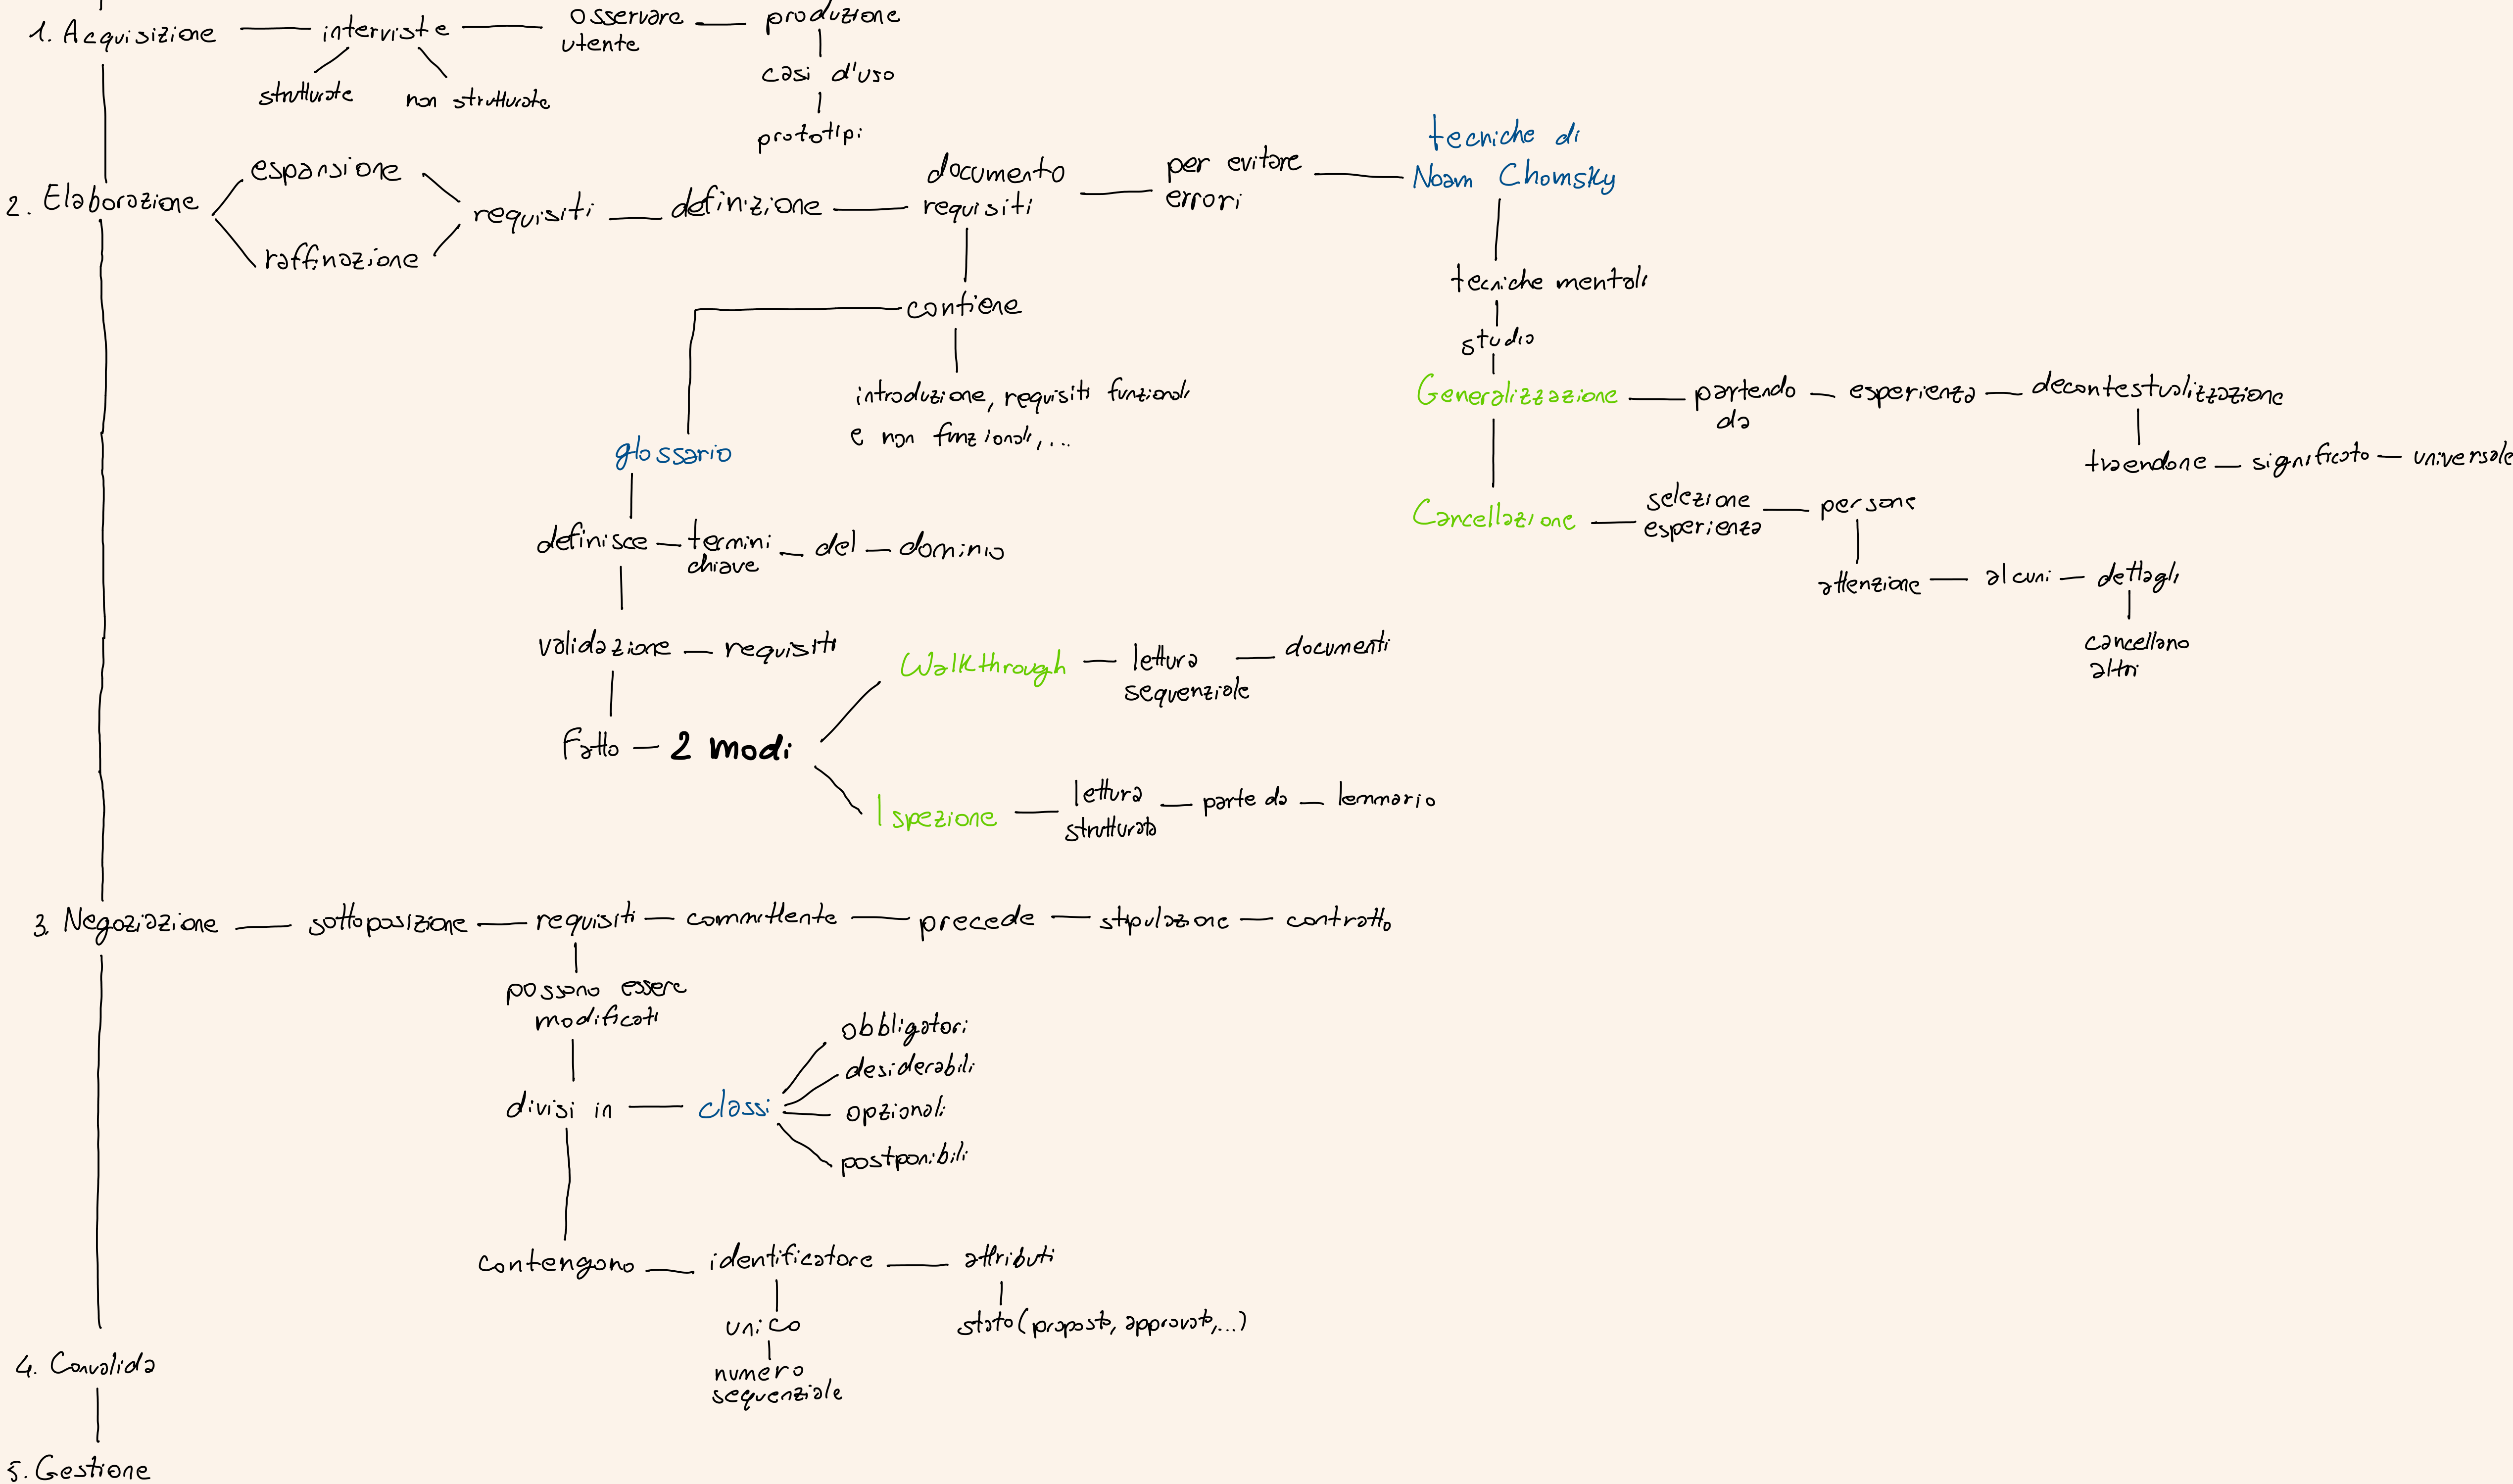 1. Acquisizione
interviste
osservare
utente
produzione
strutturate
non strutturate
casi d'uso
prototipi
2. Elaborazione
espansione
raffinazione
requisiti
definizione
documento
requisiti
per evitare
errori
tecniche di
Noam Chomsky
tecniche mentali
studio
contiene
introduzione, requisiti funzionali
e non funzionali,...
Generalizzazione
partendo
da
esperienza
decontestualizzazione
traendone
significato
universale
Cancellazione
selezione
esperienza
persone
attenzione
alcuni
dettagli
cancellano
altri
glossario
definisce
termini
chiave
del
dominio
validazione
requisiti
Fatto
2 modi
Walkthrough
lettura
sequenziale
documenti
Ispezione
lettura
strutturata
parte da
lemmario
3. Negoziazione
sottoposizione
requisiti
committente
precede
stipulazione
contratto
possono essere
modificati
divisi in
classi
obbligatori
desiderabili
opzionali
postponibili
contengono
identificatore
attributi
unico
numero
sequenziale
stato (proposto, approvato,...)
4. Convalida
5. Gestione